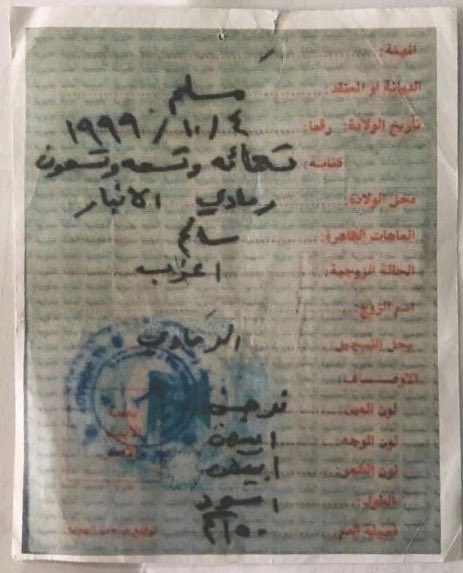 المهنة:
الديانة أو المعتقد: مسلم
تاريخ الولادة: رقما: ١٩٩٩/١٠/٤
كتابة: وتسعه وتسعون
محل الولادة: رمادي الانبار
العاهات الظاهرة: سالم
الحالة الزوجية: اعزب
اسم الزوج:
محل التسجيل: الرمادي
الأوصاف:
لون العين:
لون الوجه: ابيض
لون الشعر: ابيض
الطول: اسود
فصيلة الدم: